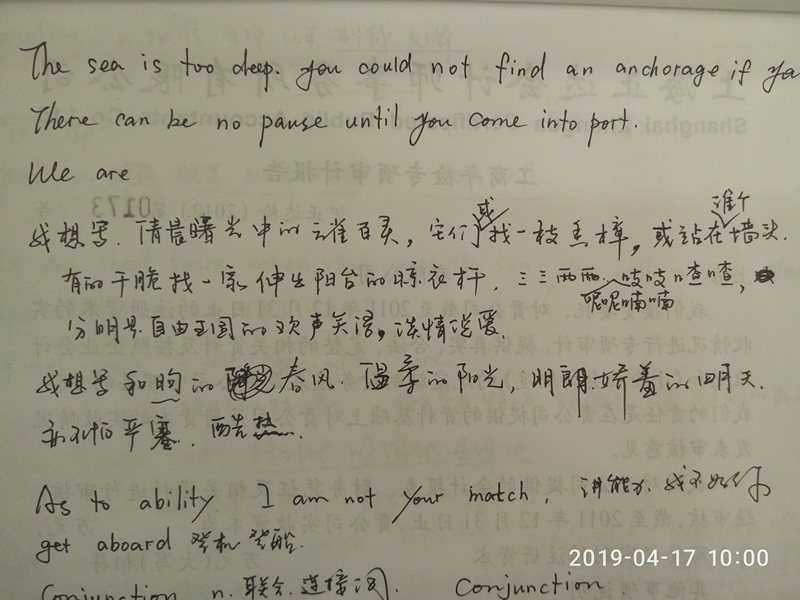 The sea is too deep. you could not find an anchorage if you
There can be no pause until you come into port.
We are
我想写. 清晨曙光中的云雀百灵, 它们或找一枝香樟, 或站在谁个墙头.
有的干脆找一家伸出阳台的晾衣杆, 三三两两. 吱吱喳喳,
呢呢喃喃
分明是自由王国的欢声笑语, 谈情说爱.
我想写和煦的春风. 温柔的阳光, 明朗娇羞的四月天.
亦不怕严寒. 酷热.
As to ability I am not your match, 讲能力. 我不如你
get aboard 登机 登船.
Conjunction n. 联合. 连接词. Conjunction.
2019-04-17 10:00